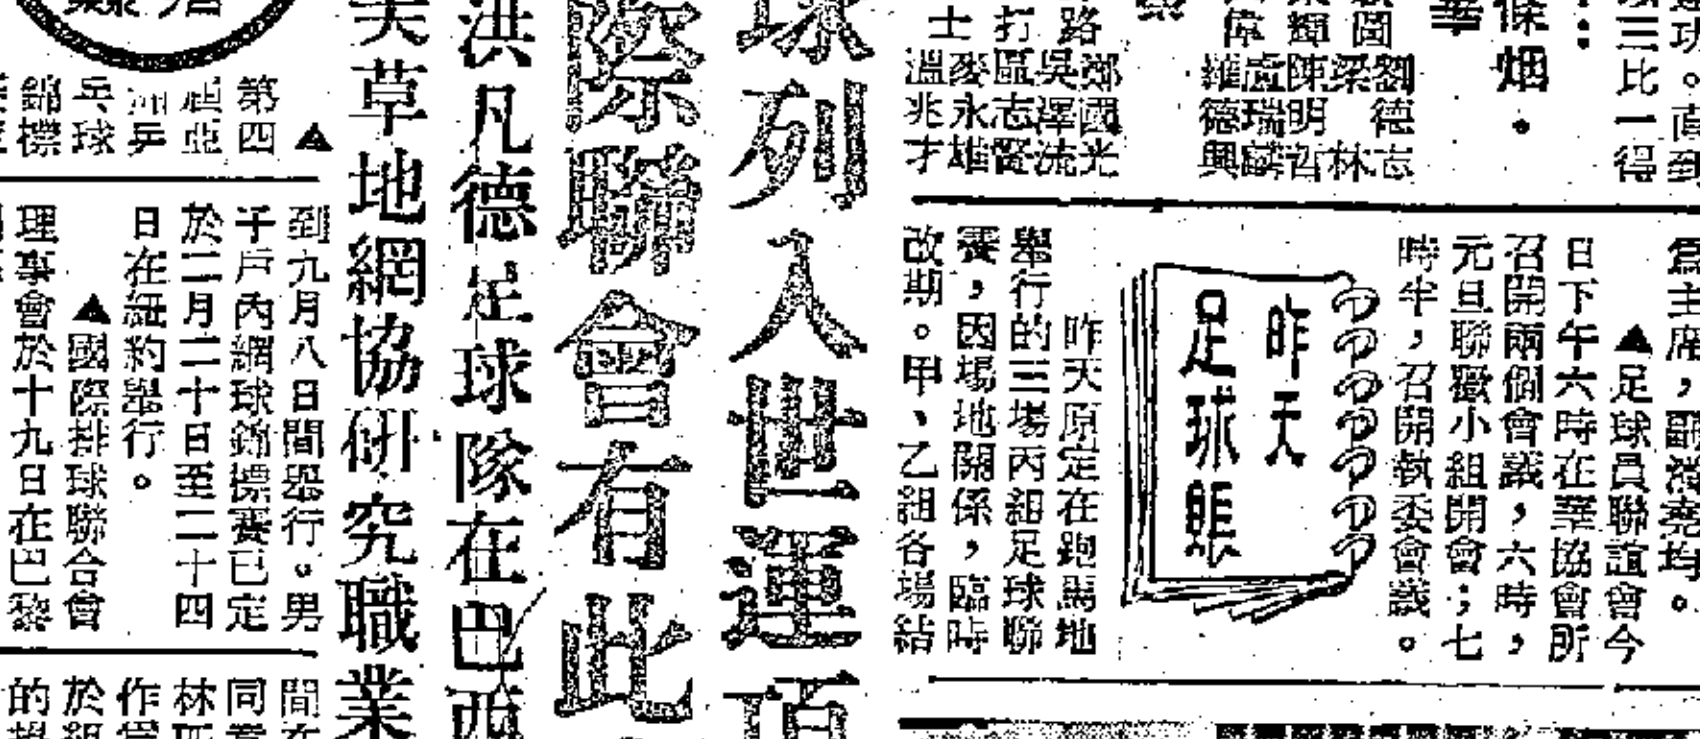 功。直到
須三比一得
條烟.
劉德志
梁林
陳明哲
盧瑞麟
羅德興
鄭國光
吳澤流
區志賢
麥永雄
溫兆才
為主席,
▲足球員聯誼會今
日下午六時在華協會所
召開兩個會議,六時,
元旦聯歡小組開會;七
時半,召開執委會議。
昨天
足球賬
昨天原定在跑馬地
舉行的三場丙組足球聯
賽,因場地關係,臨時
改期。甲、乙組各場結
球列入世運項
際聯會有此
洪凡德足球隊在巴西
美草地網協研究職業
▲
第四
屆亞
洲乒
乓球
錦標
到九月八日間舉行。男
子戶內網球錦標賽已定
於二月二十日至二十四
日在紐約舉行。
▲國際排球聯合會
理事會於十九日在巴黎
間在
同意
林匹
作為
於組
的